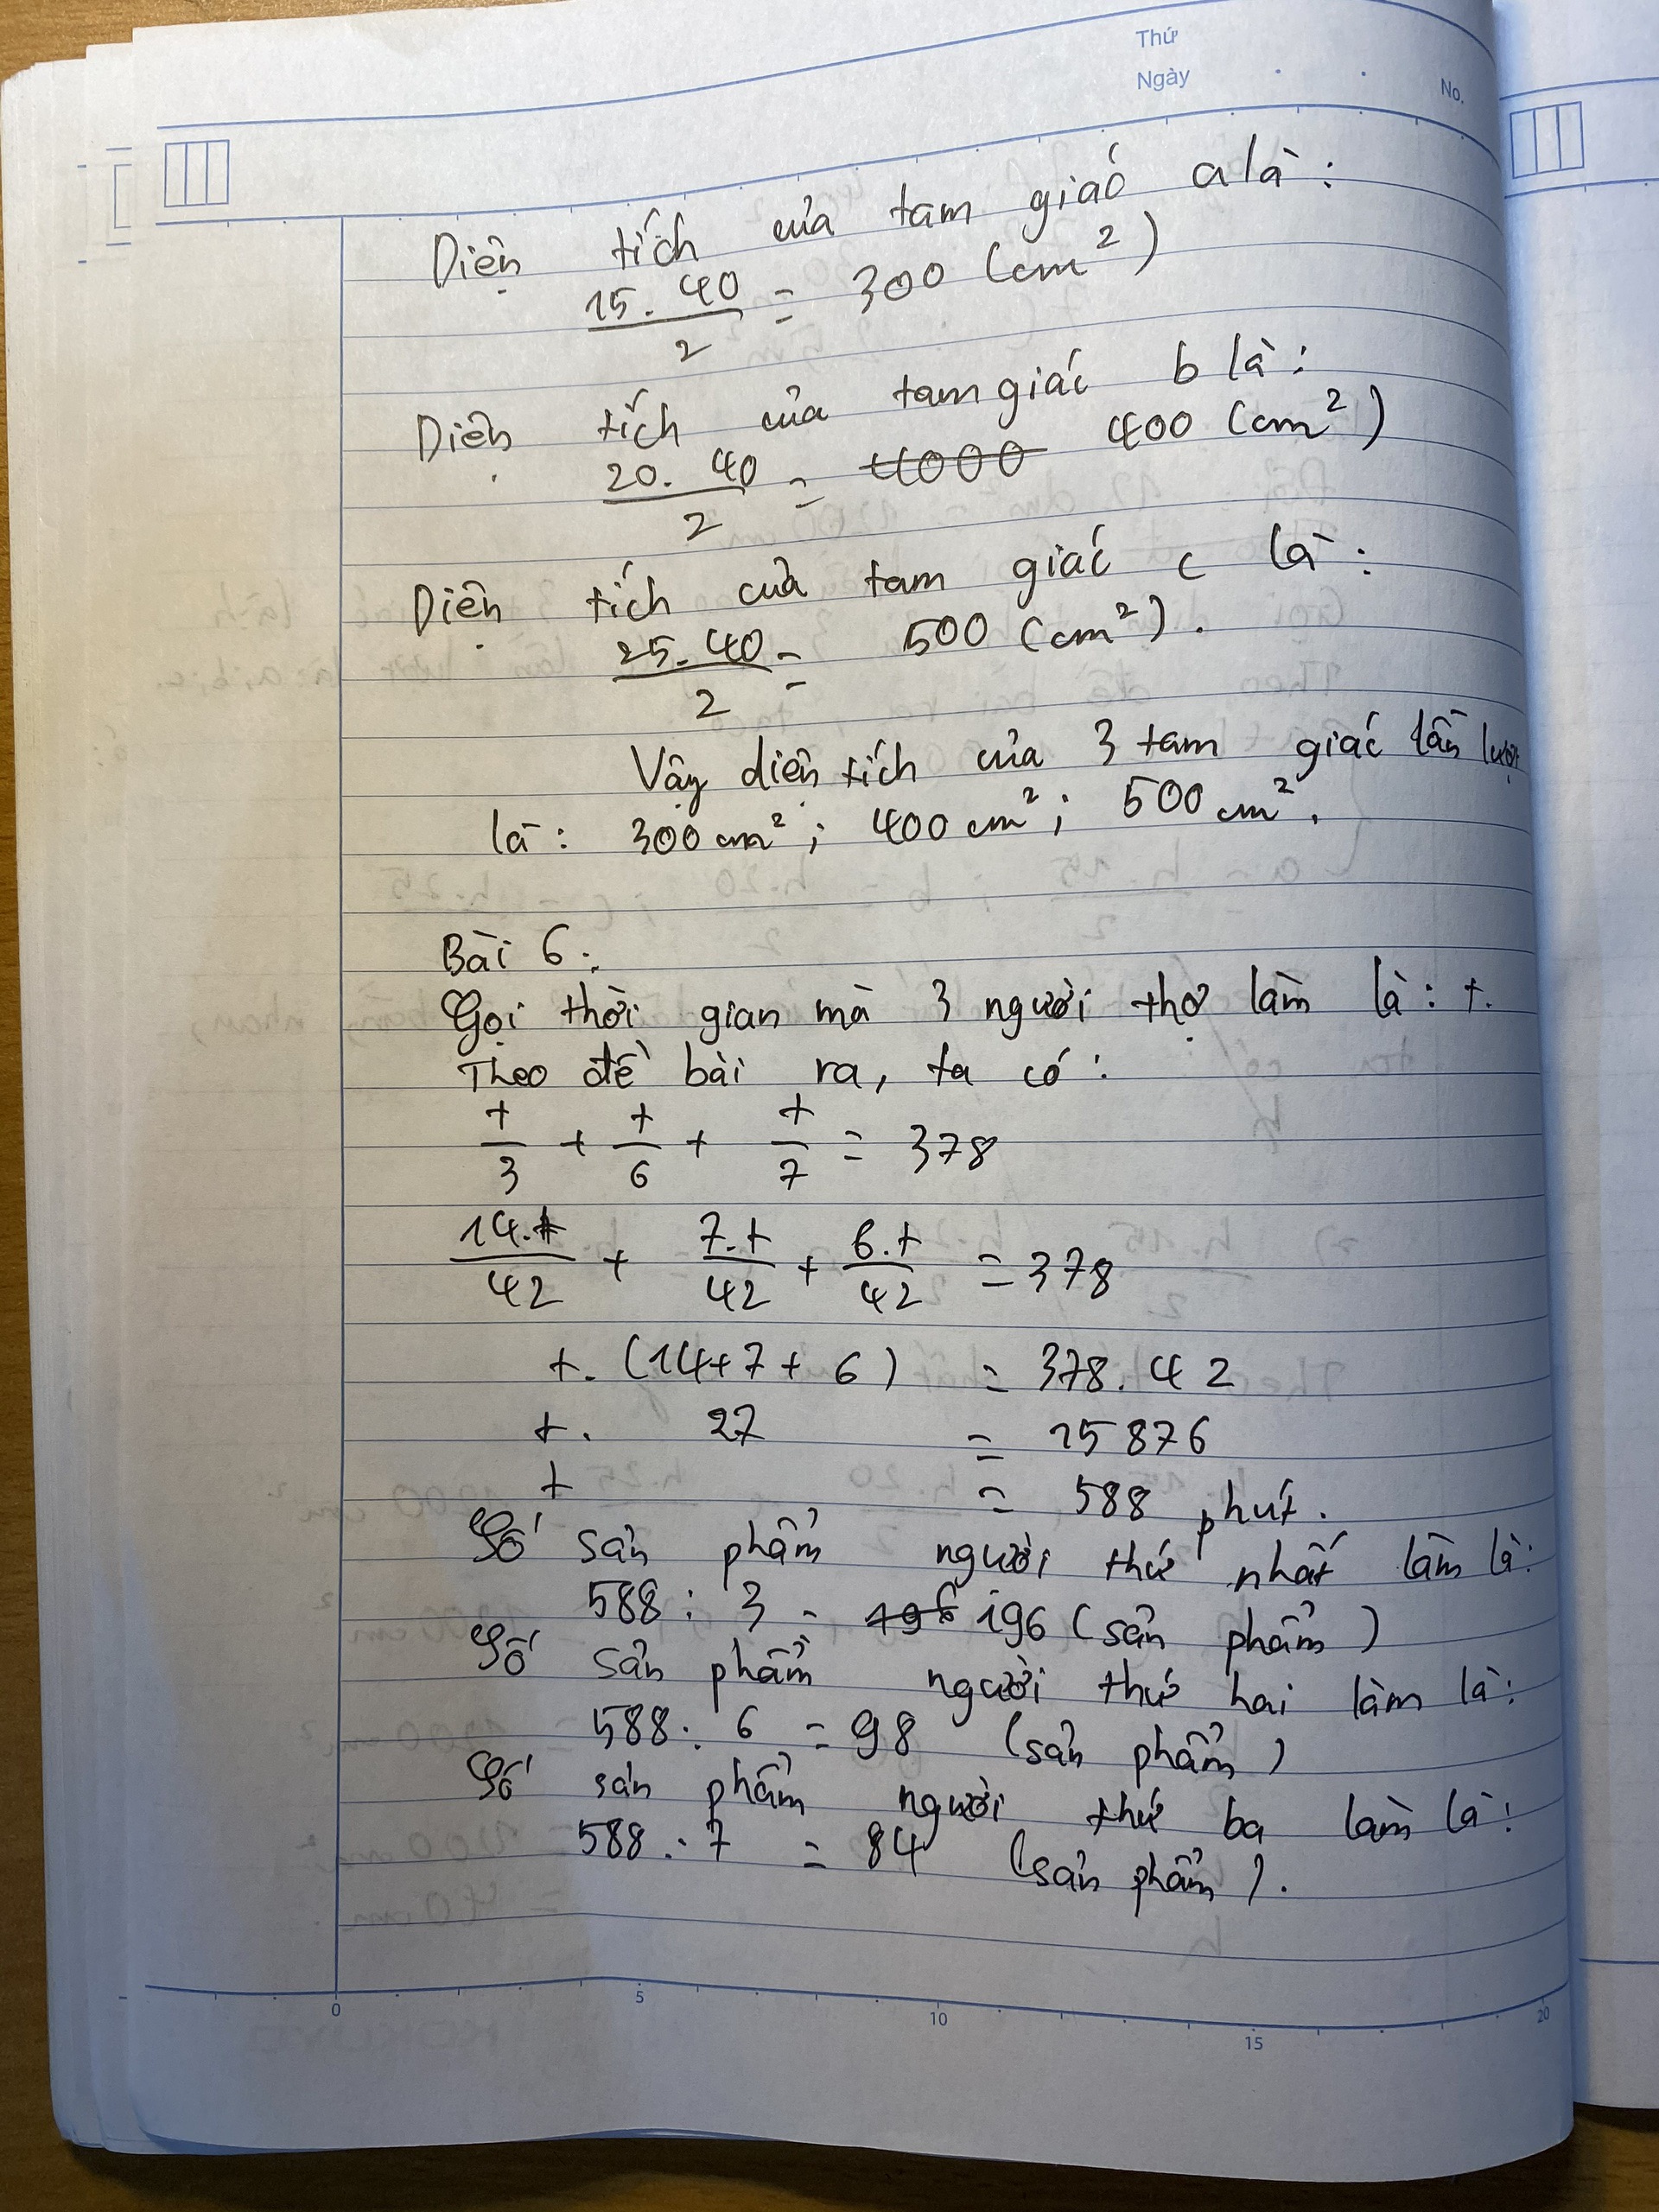 Thứ
Ngày
No.
Diện tích của tam giác a là:
15. 40 / 2 = 300 (cm²)
Diện tích của tam giác b là:
20. 40 / 2 = 4000 400 (cm²)
Diện tích của tam giác c là:
25. 40 / 2 = 500 (cm²).
Vậy diện tích của 3 tam giác lần lượt
là: 300 cm²; 400 cm²; 500 cm².
Bài 6:
Gọi thời gian mà 3 người thợ làm là: t.
Theo đề bài ra, ta có:
t/3 + t/6 + t/7 = 378
14.t/42 + 7.t/42 + 6.t/42 = 378
t. (14+7+6) = 378.42
t. 27 = 15876
t = 588 phút.
Số sản phẩm người thứ nhất làm là:
588: 3 = 196 196 (sản phẩm)
Số sản phẩm người thứ hai làm là:
588: 6 = 98 (sản phẩm)
Số sản phẩm người thứ ba làm là:
588: 7 = 84 (sản phẩm).
0 5 10 15 20